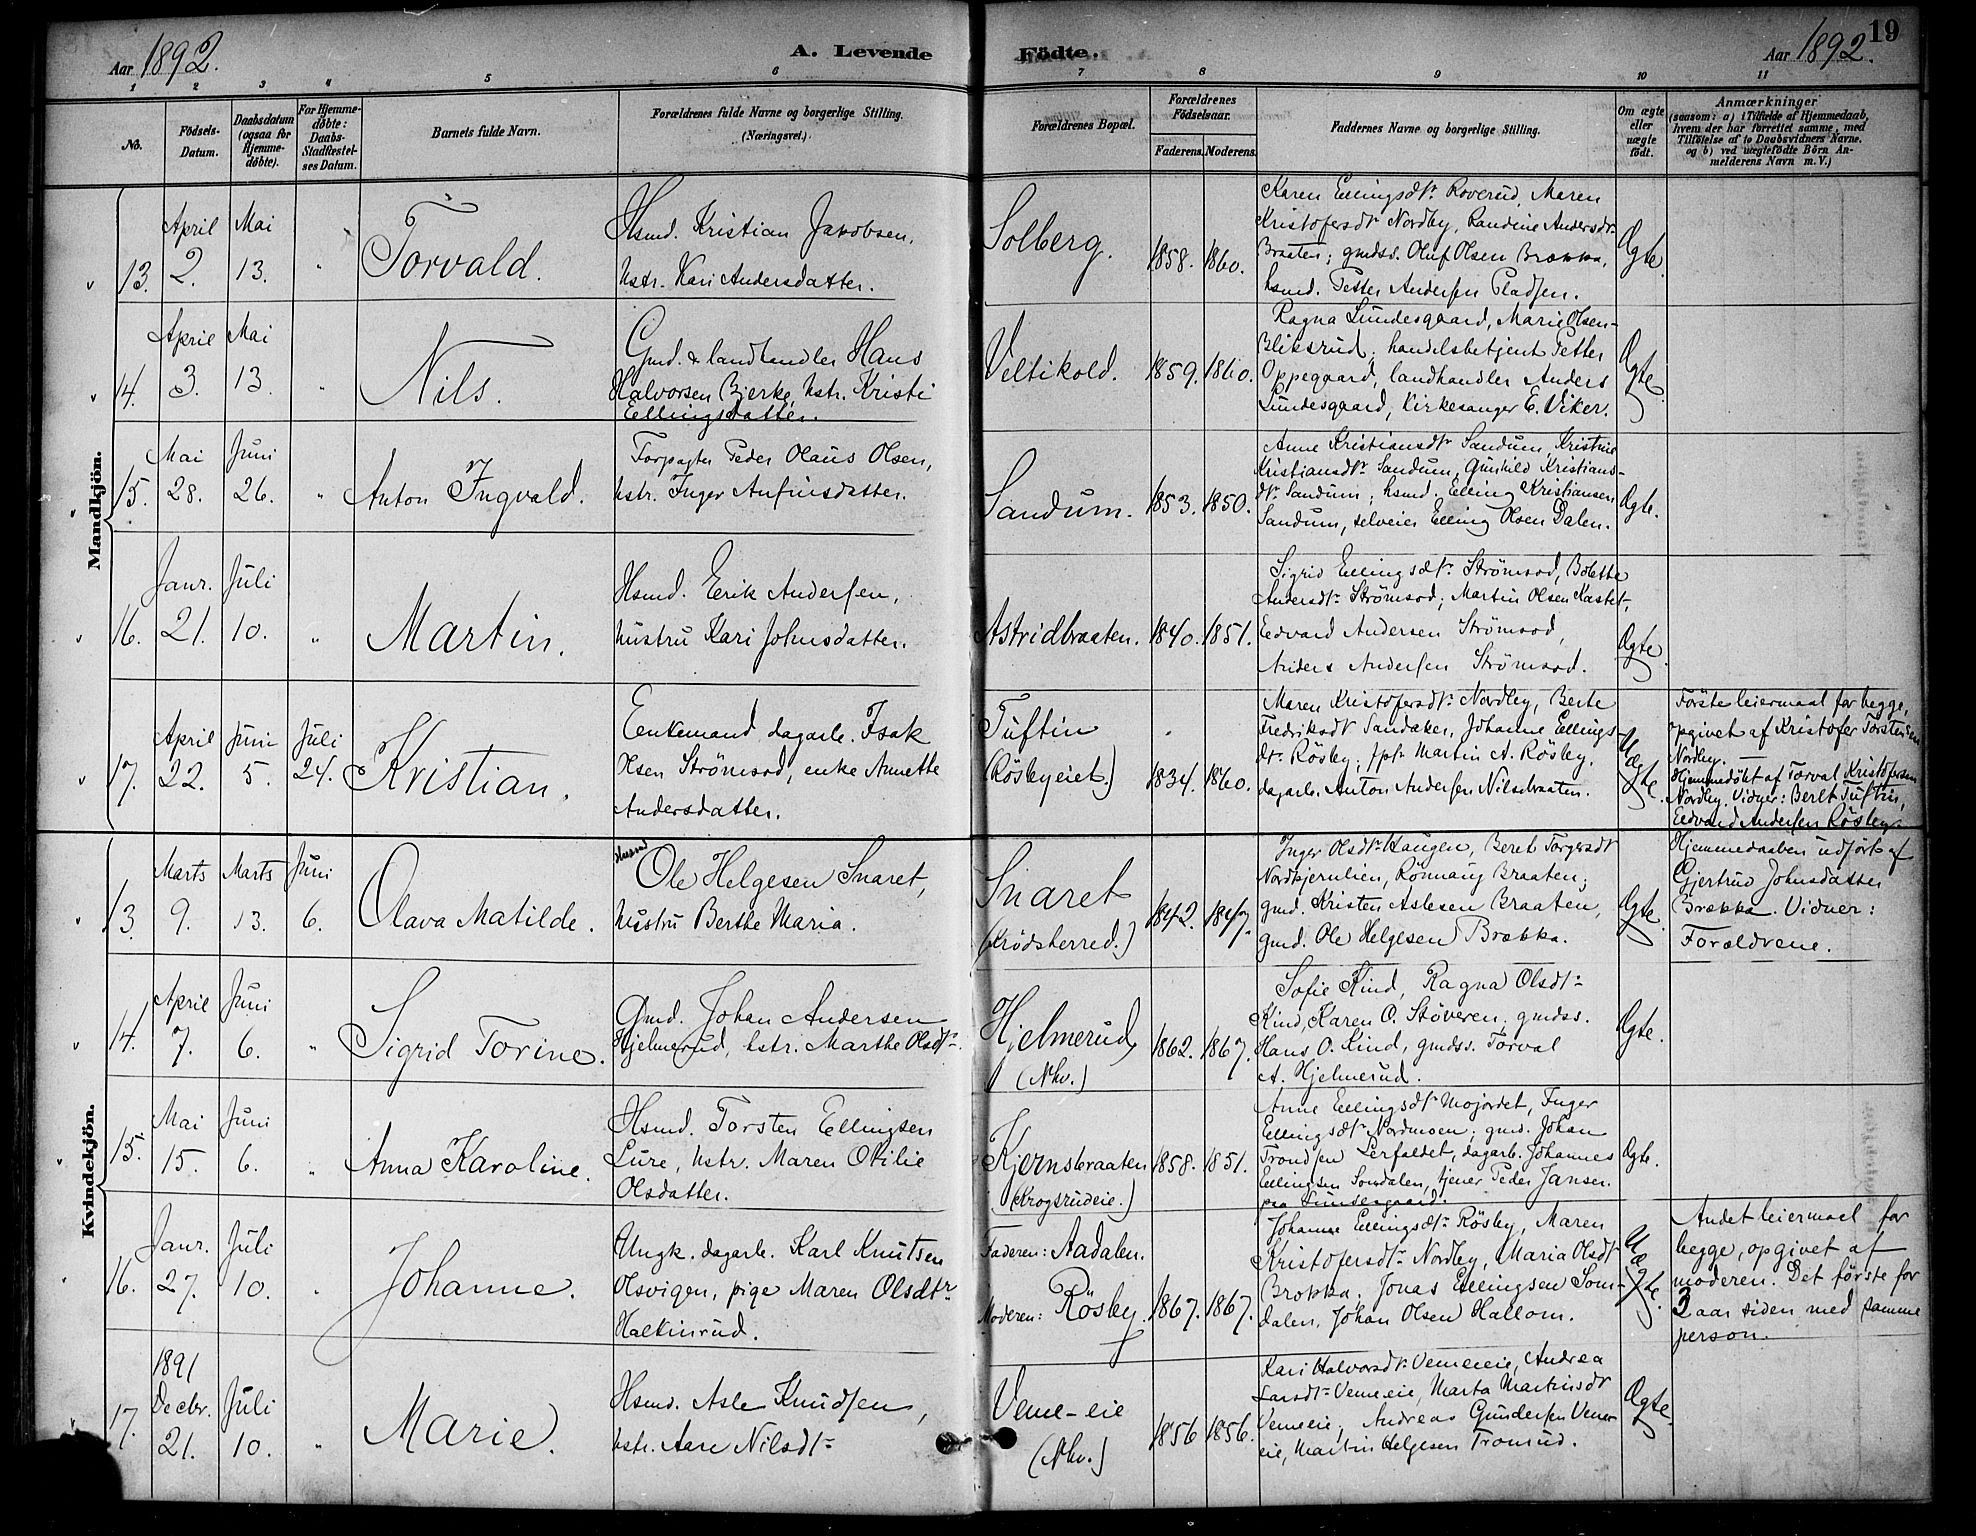 Aar 1892.
A. Levende
Födte.
Aar 1892.
19
1 2 3 4 5 6 7 8 9 10 11
No.
Födsels-
Datum.
Daabsdatum
(ogsaa for
Hjemme-
döbte).
For Hjemme-
döbte:
Daabs-
Stadfæstel-
ses Datum.
Barnets fulde Navn.
Forældrenes fulde Navne og borgerlige Stilling.
(Næringsvei.)
Forældrenes Bopæl.
Forældrenes
Födselsaar.
Faderens. Moderens.
Faddernes Navne og borgerlige Stilling.
Om ægte
eller
uægte
födt.
Anmærkninger
(saasom: a) i Tilfælde af Hjemmedaab,
hvem der har forrettet samme, med
Tilföielse af to Daabsvidners Navne.
og b) ved uægtefödte Börn An-
melderens Navn m. V.)
Mandkjön.
13.
April
2.
Mai
13.
"
Torvald.
Hsmd. Kristian Jakobsen,
hstr. Kari Andersdatter.
Solberg.
1858. 1860.
Karen Ellingsdtr Roverud, Maren
Kristofersdtr Nordby, Randine Andersdtr
Braaten; gmdss. Oluf Olsen Brækka,
hsmd. Petter Andersen Pladsen.
Ægte.
14.
April
3.
Mai
13.
"
Nils.
Gmd. & landhandler Hans
Halvorsen Bjerke, hstr. Kristi
Ellingsdatter.
Veltikold.
1859. 1860.
Ragna Lundesgaard, Marie Olsen
Bliksrud; handelsbetjent Petter
Oppegaard, landhandler Anders
Lundesgaard, kirkesanger E. Viker.
Ægte.
15.
Mai
28.
Juni
26.
"
Anton Ingvald.
Forpagter Peder Olaus Olsen,
hstr. Inger Anfinsdatter.
Sandum.
1853. 1850.
Anne Kristiansdtr Sandum, Kristine
Kristiansdtr Sandum, Gunhild Kristians-
dtr Sandum; hsmd. Elling Kristiansen
Sandum, selveier Elling Olsen Dalen.
Ægte.
16.
Janr.
21.
Juli
10.
"
Martin.
Hsmd. Erik Andersen,
hustru Kari Johnsdatter.
Astridbraaten.
1840. 1851.
Sigrid Ellingsdtr Strömsod, Bolette
Andersdtr Strömsod; Martin Olsen Kastet,
Edvard Andersen Strömsod,
Anders Andersen Strömsod.
Ægte.
17.
April
22.
Juni
5.
Juli
24.
Kristian.
Enkemand dagarb. Isak
Olsen Strömsod, enke Annette
Andersdatter.
Tuftin
(Rösbyeiet.)
1834. 1860.
Maren Kristofersdtr Nordby, Berte
Fredriksdt Sandaker, Johanne Ellings-
dtr Rösby; fpt. Martin A. Rösby.
dagarb. Anton Andersen Nilsebraaten.
Uægte.
Förste leiermaal for begge,
opgivet af Kristofer Torstensen
Nordby. —
Hjemmedöbt af Torval Kristofersen
Nordby. Vidner: Beret Tuftin,
Edvard Andersen Rösby.
Kvindekjön.
13.
Marts
9.
Marts
13.
Juni
6.
Olava Matilde.
Husmd
Ole Helgesen Snaret,
hustru Berthe Maria.
Snaret
(Krödsherred.)
1842. 1847.
Inger Olsdtr Haugen, Beret Torgersdt
Nordkjernlien, Rönnaug Braaten;
gmd. Kristen Aslesen Braaten,
gmd. Ole Helgesen Brækka.
Ægte.
Hjemmedaaben udfört af
Gjertrud Johnsdatter
Brækka. Vidner:
Forældrene.
14.
April
7.
Juni
6.
"
Sigrid Torine.
Gmd. Johan Andersen
Hjelmerud, hstr. Marthe Olsdtr
Hjelmerud,
(Nhv.)
1862. 1867.
Sofie Kind, Ragna Olsdtr
Kind, Karen O. Stöveren; gmdss.
Hans O. Kind, gmdss. Torval
A. Hjelmerud.
Ægte.
15.
Mai
15.
Juni
6.
"
Anna Karoline.
Hsmd. Torsten Ellingsen
Lure, hstr. Maren Otilie
Olsdatter.
Kjernsbraaten
(Krogsrudeie.)
1858. 1851.
Anne Ellingsdtr Mojordet, Inger
Ellingsdtr Nordmoen; gmd. Johan
Trondsen Lerfaldet, dagarb. Johannes
Ellingsen Somdalen, tjener Peder Jansen
paa Lundesgaard.
Ægte.
16.
Janr.
27.
Juli
10.
"
Johanne.
Ungk. dagarb. Karl Knutsen
Olsvigen, pige Maren Olsdtr
Halkinrud.
Faderen: Aadalen.
Moderen: Rösby.
1867. 1867.
Johanne Ellingsdtr Rösby, Maren
Kristofersdtr Nordby, Maria Olsdt
Brækka. Jonas Ellingsen Som-
dalen, Johan Olsen Hallom.
Uægte.
Andet leiermaal for
begge, opgivet af
moderen. Det förste for
3 aar siden med samme
person.
17.
1891
Decbr.
21.
Juli
10.
"
Marie.
Hsmd. Asle Knudsen,
hstr. Aare Nilsdtr
Veme-eie
(Nhv.)
1856 1856.
Kari Halvorsdtr Vemeeie, Andrea
Larsdtr Vemeeie, Marta Martinsdt
Vemeeie; Andreas Gundersen Veme-
eie, Martin Helgesen Tronrud.
Ægte.